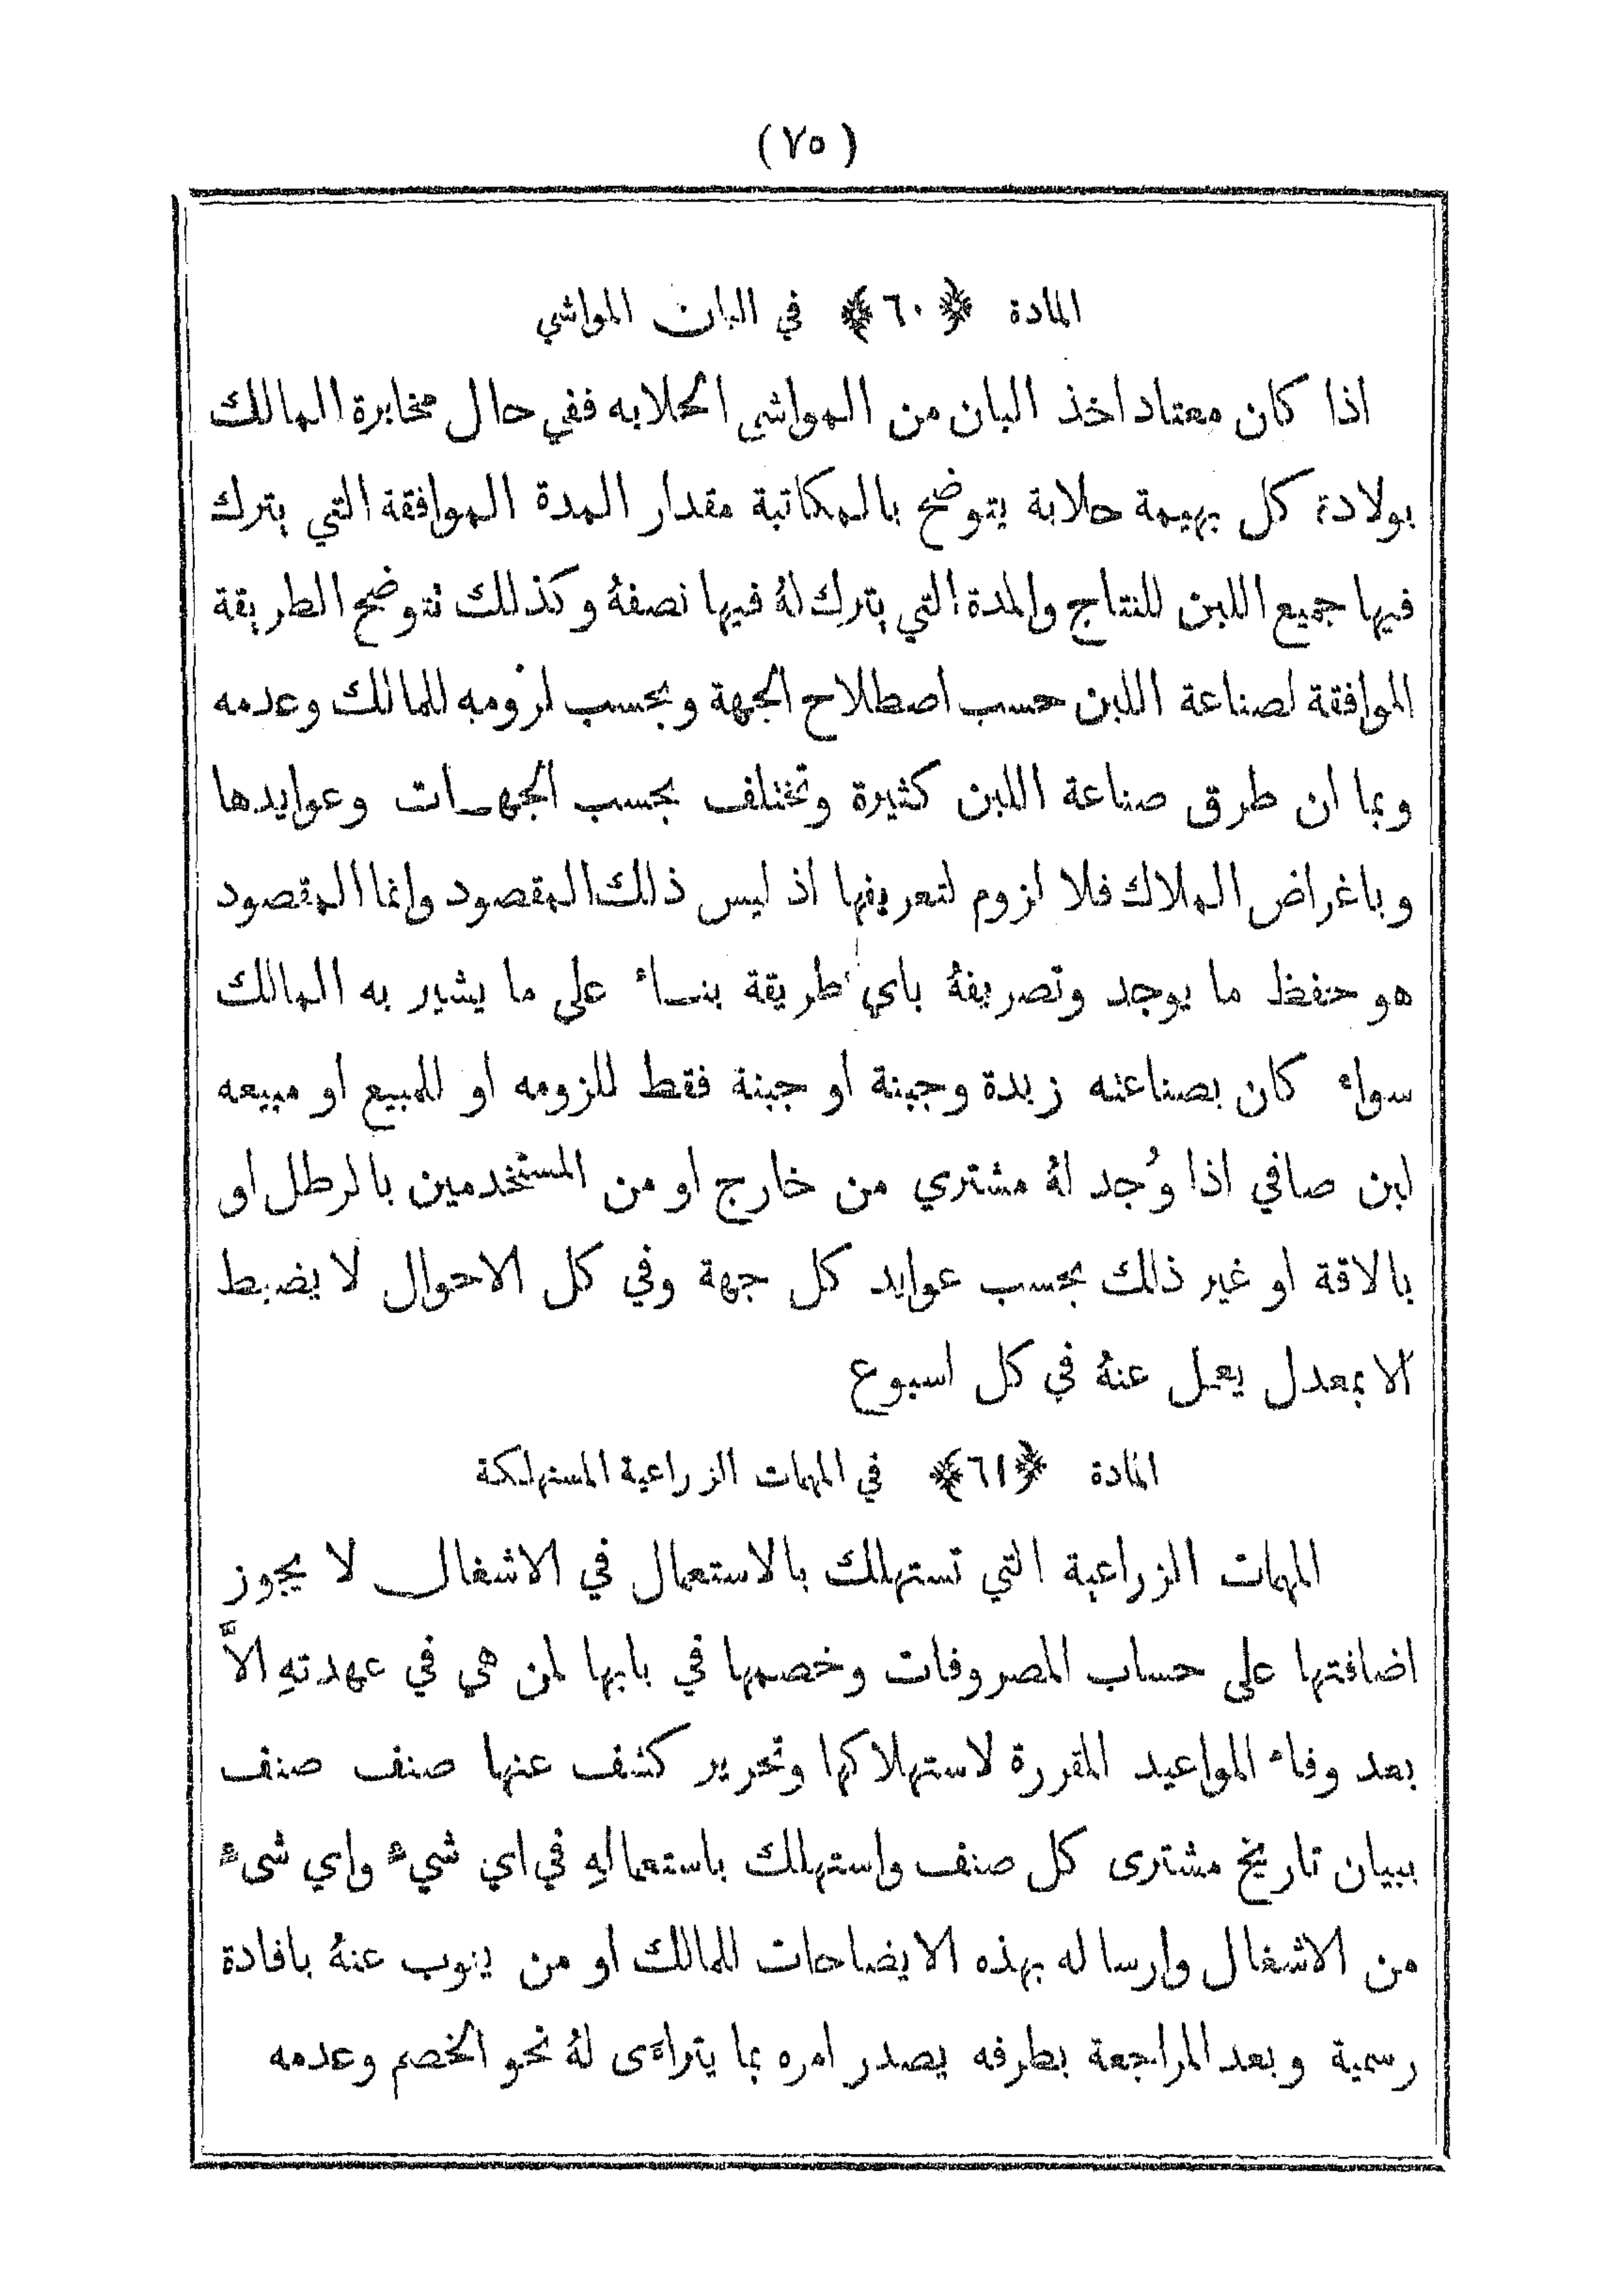 (٧٥)
المادة ﴿٦٠﴾ في البان المواشي
اذا كان معتاد اخذ البان من المواشى الحلابه ففي حال مخابرة المالك
بولادة كل بهيمة حلابة يتوضح بالمكاتبة مقدار المدة الموافقة التي يترك
فيها جميع اللبن للنتاج والمدة التي يترك لهُ فيها نصفهُ وكذلك تتوضح الطريقة
الموافقة لصناعة اللبن حسب اصطلاح الجهة وبحسب لزومه للمالك وعدمه
وبما ان طرق صناعة اللبن كثيرة وتختلف بحسب الجهات وعوايدها
وباغراض الملاك فلا لزوم لتعريفها اذ ليس ذلك المقصود وانما المقصود
هو حفظ ما يوجد وتصريفهُ باي طريقة بناء على ما يشير به المالك
سواء كان بصناعته زبدة وجبنة او جبنة فقط للزومه او للمبيع او مبيعه
لبن صافي اذا وُجد لهُ مشتري من خارج او من المستخدمين بالرطل او
بالاقة او غير ذلك بحسب عوايد كل جهة وفي كل الاحوال لا يضبط
الا بمعدل يعمل عنهُ في كل اسبوع
المادة ﴿٦١﴾ في المهمات الزراعية المستهلكة
المهمات الزراعية التي تستهلك بالاستعمال في الاشغال لا يجوز
اضافتها على حساب المصروفات وخصمها في بابها لمن هي في عهدتهِ الاَّ
بعد وفاء المواعيد المقررة لاستهلاكها وتحرير كشف عنها صنف صنف
ببيان تاريخ مشترى كل صنف واستهلك باستعمالهِ في اي شيءٍ واي شىءٍ
من الاشغال وارساله بهذه الايضاحات للمالك او من ينوب عنهُ بافادة
رسمية وبعد المراجعة بطرفه يصدر امره بما يتراءى لهُ نحو الخصم وعدمه